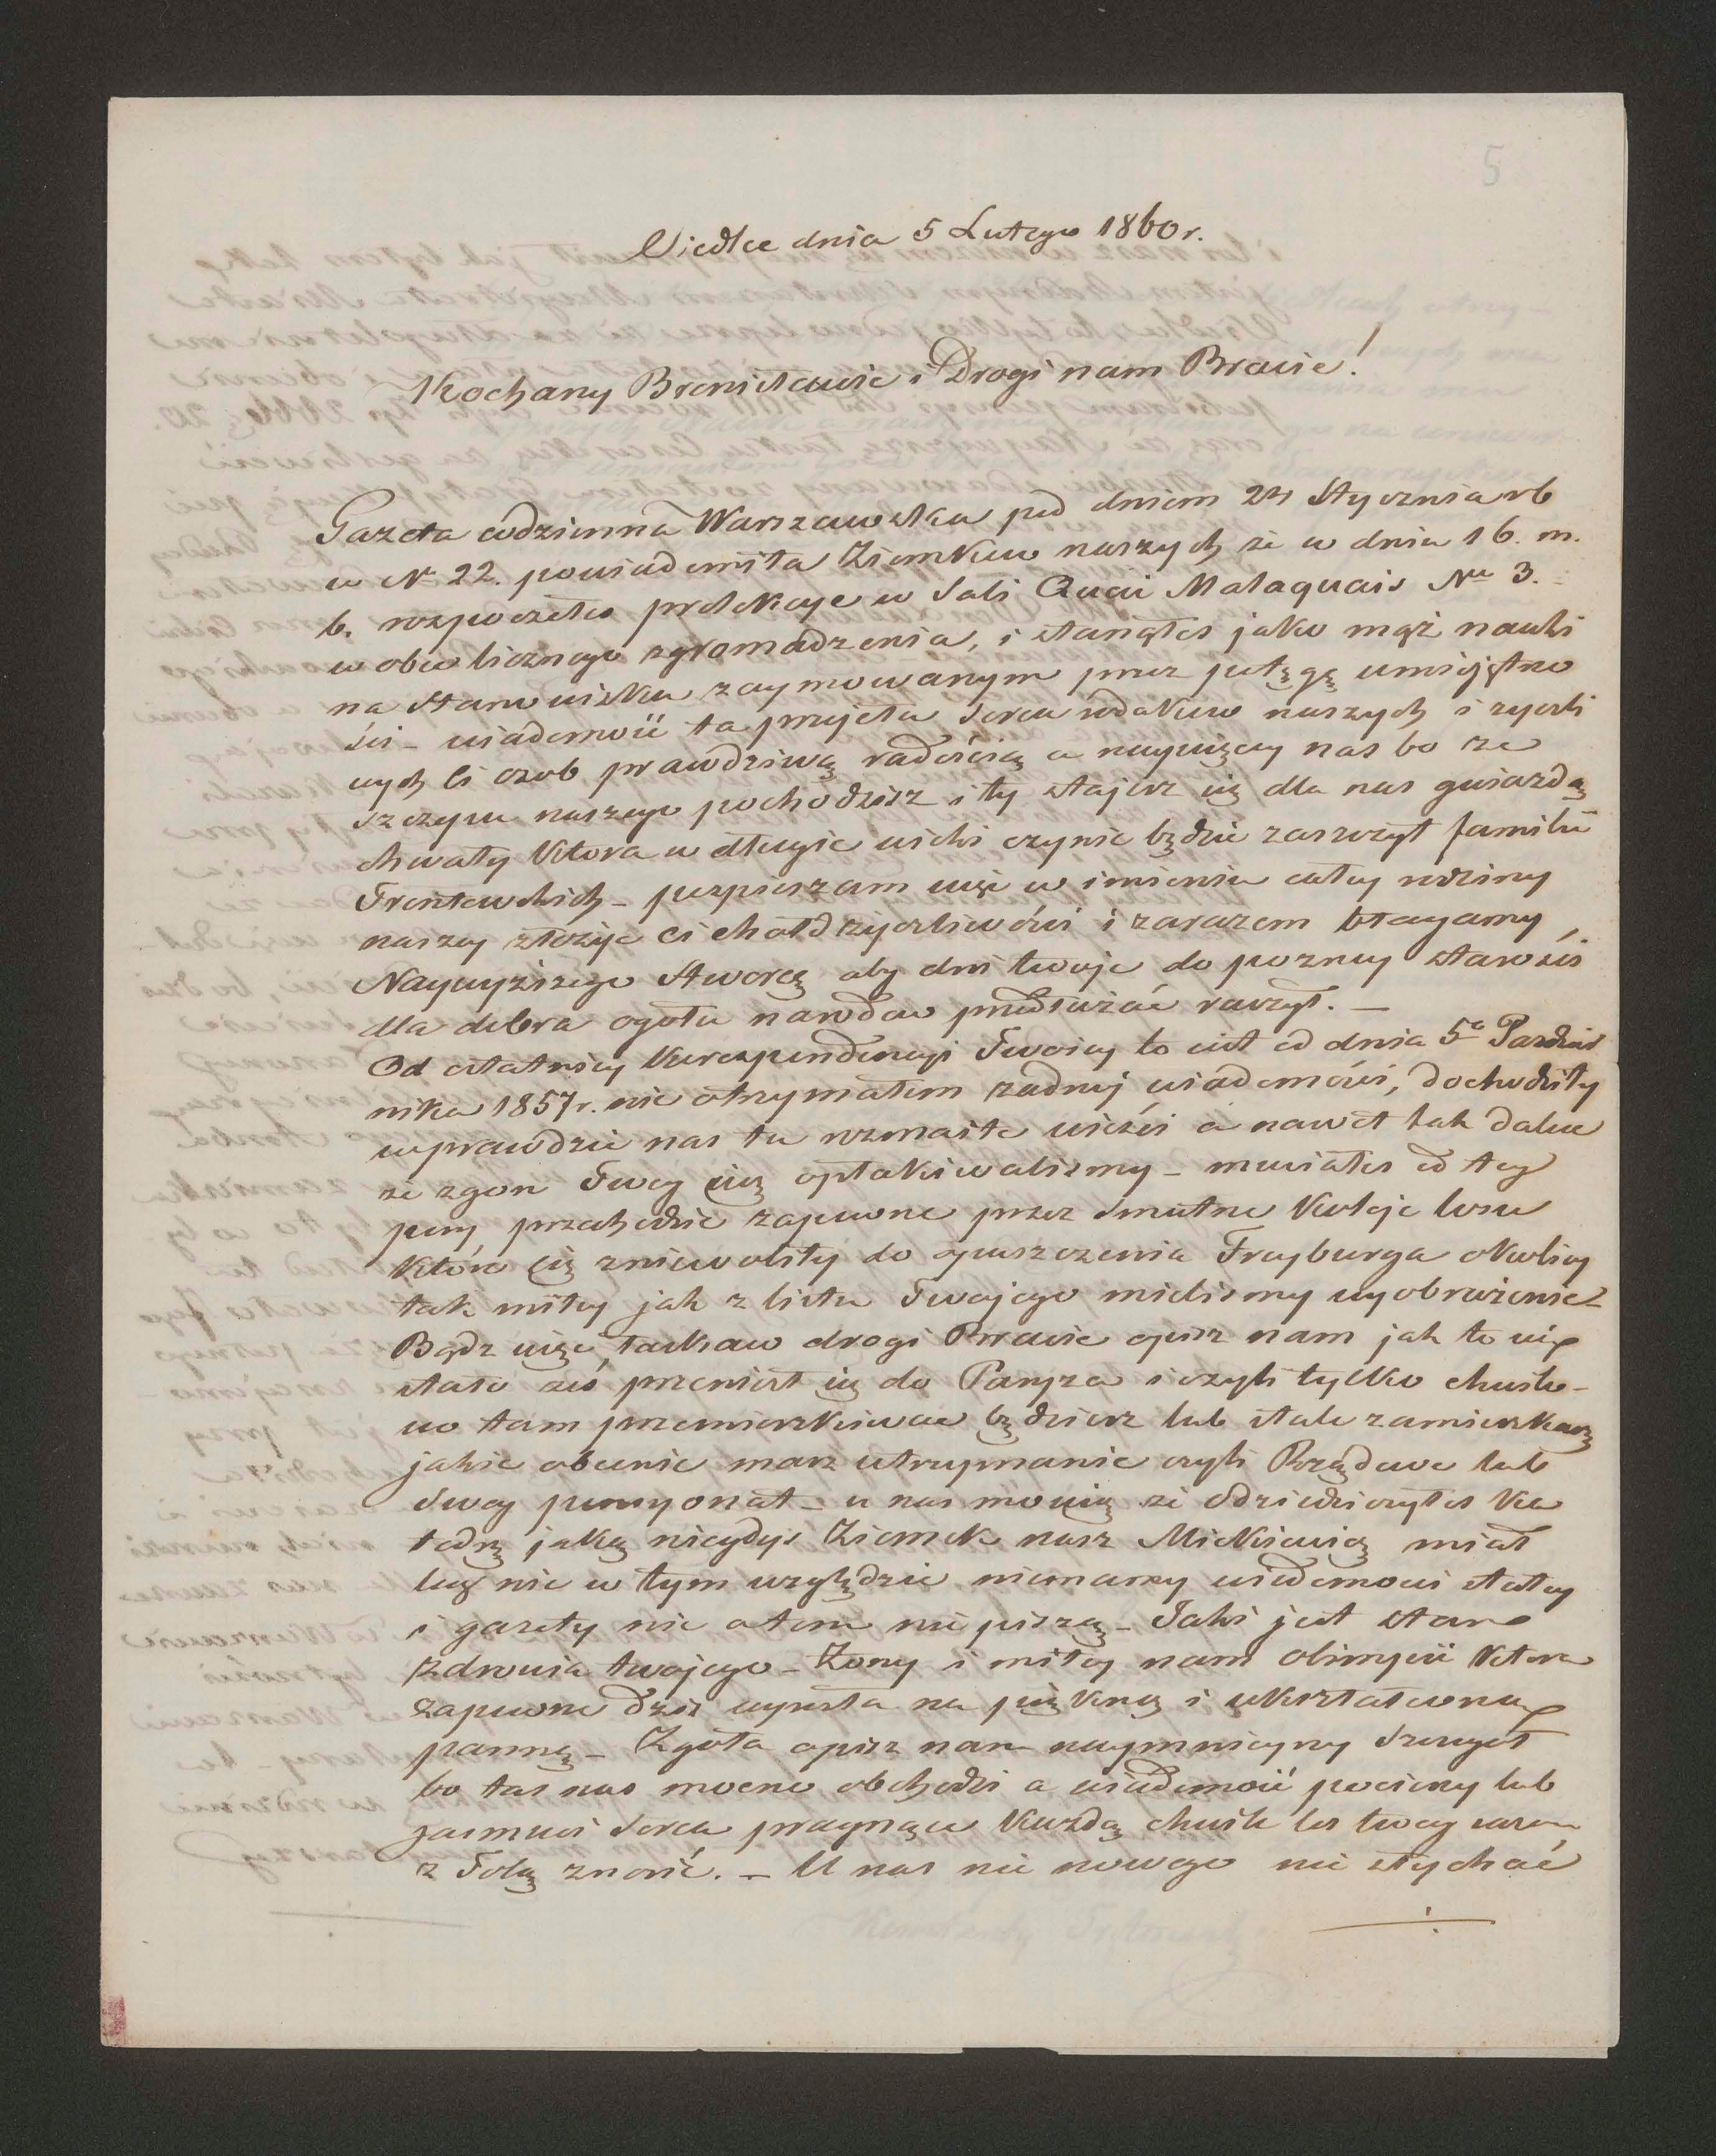 5
Siedlce dnia 5 Lutego 1860 r.
Kochany Bronisławie i Drogi nam Bracie!
Gazeta codzienna Warszawska pod dniem 24 Stycznia rb
w Nr 22. powiadomiła Ziomków naszych że w dniu 16. m.
b. rozpocząłeś prelekcye w Sali Quai Malaquais Nro 3.
w obec licznego zgromadzenia, i stanąłeś jako mąż nauki
na stanowisku zaymowanym przez potęgę umiejętno
ści – wiadomość ta przejęła serca rodaków naszych i życzli
wych Ci osob prawdziwą radością a naywięcey nas bo ze
szczepu naszego pochodzisz i ty stajesz się dla nas gwiazdą
chwały która w długie wieki czynić będzie zaszczyt familii
Trentowskich – pospieszam więc w imieniu całey rodziny
naszey złożyć Ci chołd życzliwości i zarazem błagamy
Naywyższego Stworcę aby dni twoje do pozney starości
dla dobra ogółu narodow przedłużać raczył. –
Od ostatniey korespondencyi Twoiey to iest od dnia 5o Pazdzier
nika 1857 r. nie otrzymałem żadnej wiadomości, dochodziły
wprawdzie nas tu rozmaite wieści a nawet tak dalece
że zgon Twoy już opłakiwalismy – musiałeś od tey
pory przechodzić zapewne przez smutne koleje losu
które cię zniewoliły do opuszczenia Frayburga okolicy
tak miłey jak z listu Twojego mielismy wyobrażenie –
Bądz więc łaskaw drogi Bracie opisz nam jak to się
stało żeś przeniósł się do Paryża i czyli tylko chwilo-
wo tam przemieszkiwać będziesz lub stale zamieszkasz
jakie obecnie masz utrzymanie czyli Rządowe lub
Swoy pensyonat – u nas mowią że odziedziczyłeś ka
tedrę jaką niegdyś Ziomek nasz Mickiewicz miał
lecz nic w tym względzie niemamy wiadomości stałey
i gazety nic otem nie piszą – Jaki jest stan
zdrowia twojego – Żony i miłey nam olimpii która
zapewne dziś wyrosła na piękną i ukształconą
pannę – Zgoła opisz nam naymnieyszy szczegół
bo tas nas mocno obchodzi a wiadomość pocieszy lub
zasmuci serca pragnące każdą chwilę los twoy razem
z Tobą znosić. – U nas nic nowego nie słychać